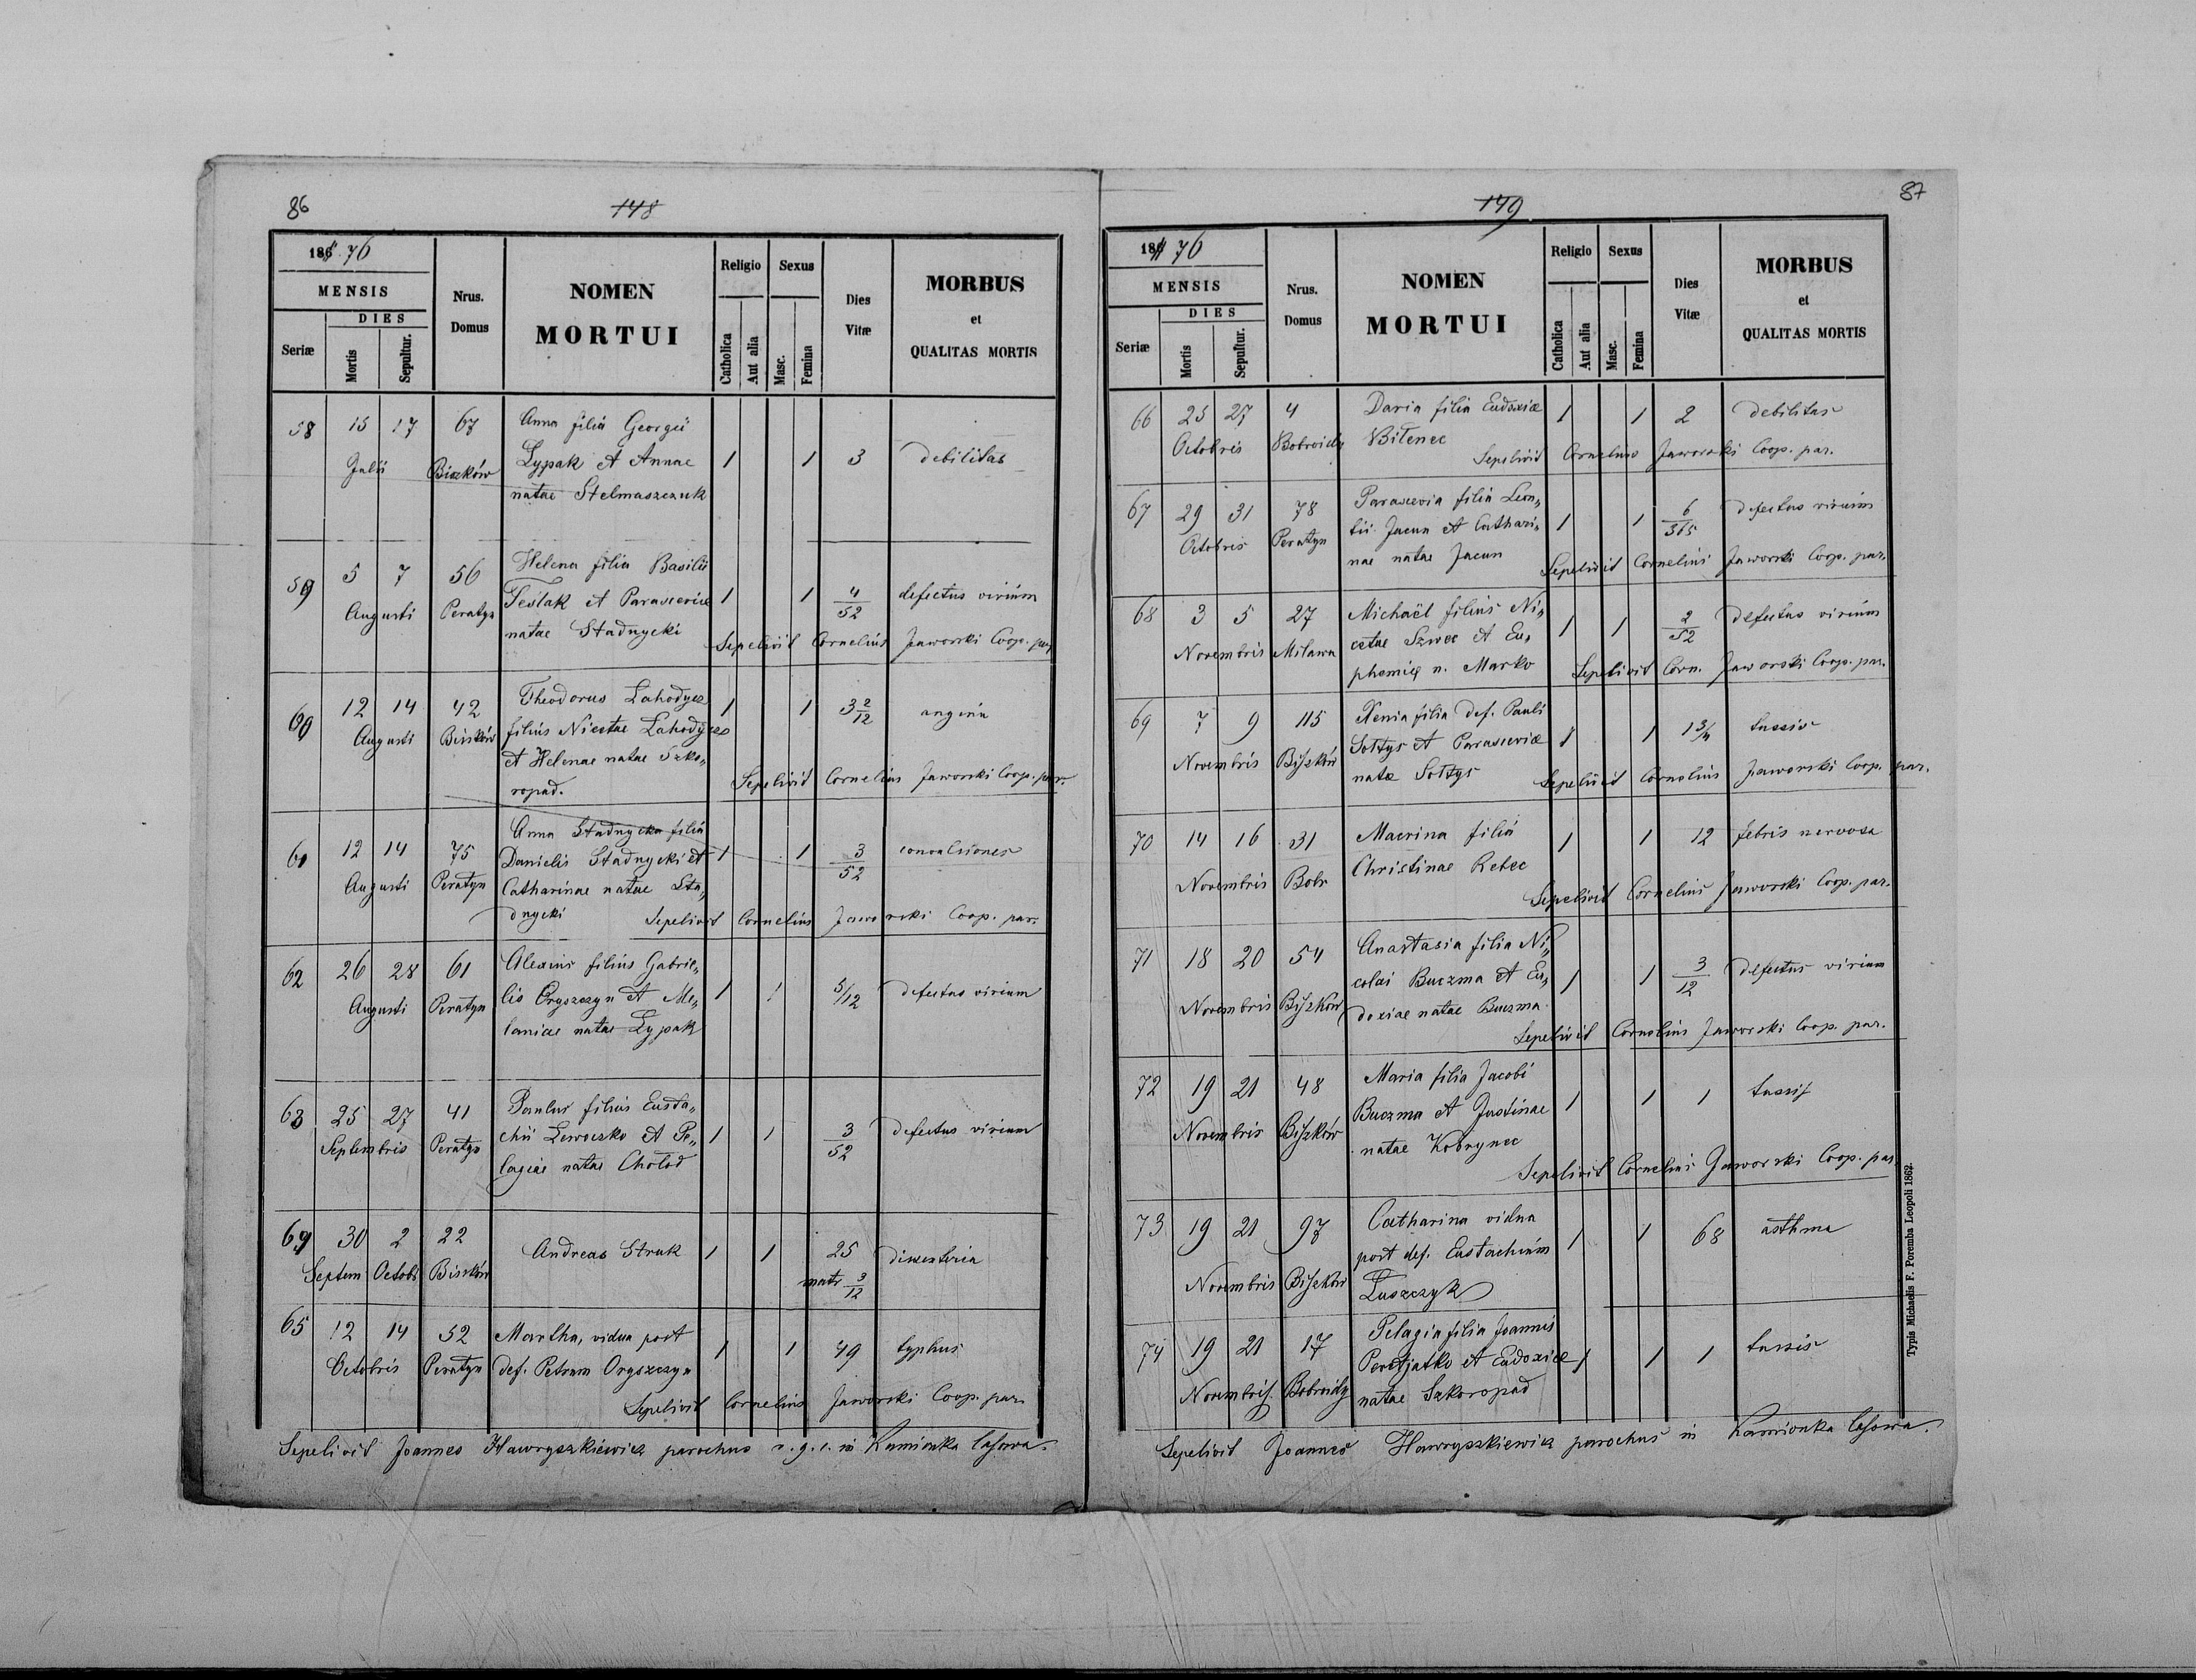 86
148
186 76
MENSIS
DIES
Seriæ
Mortis
Sepultur.
Nrus. Domus
NOMEN
MORTUI
Religio
Catholica
Aut alia
Sexus
Masc.
Femina
Dies Vitæ
MORBUS
et
QUALITAS MORTIS
58 15 17 67 Anna filia Georgii
Julii Biszków Łypak et Annae 1 1 3 debilitas
natae Stelmaszczuk
59 5 7 56 Helena filia Basilii
Augusti Peratyn Teslak et Parasceviæ 1 1 4/52 defectus virium
natae Stadnycki
Sepelivit Cornelius Jaworski Coop. par.
60 12 14 42 Theodorus Lahodycz 1 1 3 2/12 angina
Augusti Biszków filius Nicetae Lahodycz
et Helenae natae Szko„
ropad.
Sepelivit Cornelius Jaworski Coop. par.
61 12 14 75 Anna Stadnycka filia
Augusti Peratyn Danielis Stadnycki et 1 1 3/52 convulsiones
Catharinae natae Sta„
dnycki
Sepelivit Cornelius Jaworski Coop. par.
62 26 28 61 Alexius filius Gabrie„
Augusti Peratyn lis Oryszczyn et Me„ 1 1 5/12 defectus virium
laniae natae Łypak
63 25 27 41 Paulus filius Eusta„
Septembris Peratyn chii Lewoczko et Pe„ 1 1 3/52 defectus virium
lagiae natae Chołod
64 30 2 22 Andreas Struk 1 1 25 dissenteria
Septem Octobr Biszków 3/12
65 12 14 52 Martha, vidua post 1 1 49 typhus
Octobris Peratyn def. Petrum Oryszczyn
Sepelivit Cornelius Jaworski Coop. par.
Sepelivit Joannes Hawryszkiewicz parochus r. g. c. in Kamionka
87
149
18 76
MENSIS
DIES
Seriæ
Mortis
Sepultur.
Nrus. Domus
NOMEN
MORTUI
Religio
Catholica
Aut alia
Sexus
Masc.
Femina
Dies Vitæ
MORBUS
et
QUALITAS MORTIS
66 25 27 4 Daria filia Eudoxiæ 1 1 2 debilitas
Octobris Bobroidy Biłenec
Sepelivit Cornelius Jaworski Coop. par.
67 29 31 78 Parascevia filia Leon„
Octobris Peratyn tii Jacun et Cathari„ 1 1 6/365 defectus virium
nae natae Jacun
Sepelivit Cornelius Jaworski Coop. par.
68 3 5 27 Michaël filius Ni„
Novembris Milawa cetae Szwec et Eu„ 1 1 2/52 defectus virium
phemiæ n. Marko
Sepelivit Corn. Jaworski Coop. par.
69 7 9 115 Xenia filia def. Pauli
Novembris Biszków Sołtys et Parasceviæ 1 1 1 3/4 tussis
natæ Sołtys
Sepelivit Cornelius Jaworski Coop. par.
70 14 16 31 Macrina filia 1 1 12 febris nervosa
Novembris Bobr Christinae Rebec
Sepelivit Cornelius Jaworski Coop. par.
71 18 20 54 Anastasia filia Ni„
Novembris Biszków colai Buczma et Eu„ 1 1 3/12 defectus virium
doxiae natae Buczma
Sepelivit Cornelius Jaworski Coop. par.
72 19 21 48 Maria filia Jacobi
Novembris Biszków Buczma et Justinae 1 1 1 tussis
natae Kobrynec
Sepelivit Cornelius Jaworski Coop. par.
73 19 21 97 Catharina vidua
post def. Eustachium 1 1 68 asthma
Novembris Biszków Łuszczyk
74 19 21 17 Pelagia filia Joannis
Peretjatko et Eudoxiæ 1 1 1 tussis
Novembris Bobroidy natae Szkoropad
Sepelivit Joannes Hawryszkiewicz parochus in Kamionka
Typis Michaelis F. Poremba Leopoli 1862.